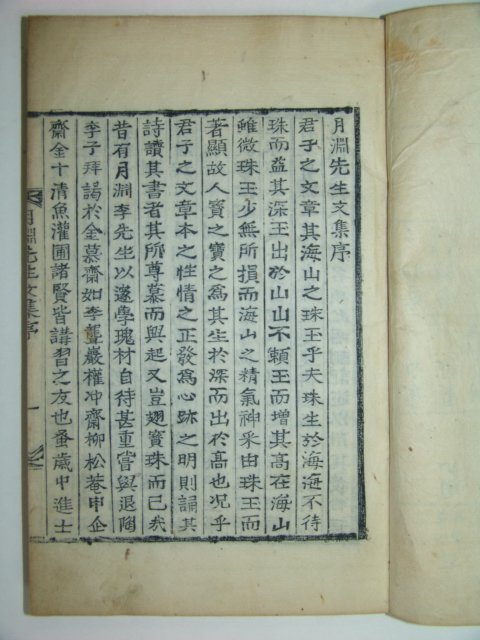 月淵先生文集序
君子之文章其海山之珠玉乎夫珠生於海海不待
珠而益其深玉出於山山不賴玉而增其高在海山
雖微珠玉少無所損而海山之精氣神采由珠玉而
著顯故人寶之寶之爲其生於深而出於高也况乎
君子之文章本之性情之正發爲心跡之明則誦其
詩讀其書者其所尊慕而興起又豈翅寶珠而已哉
昔有月淵李先生以邃學瑰材自待甚重嘗與退陶
李子拜謁於金慕齋如李聾巖權冲齋柳松菴申企
齋金十清魚灌圃諸賢皆講習之友也蚤歲中進士
月淵先生文集序
一